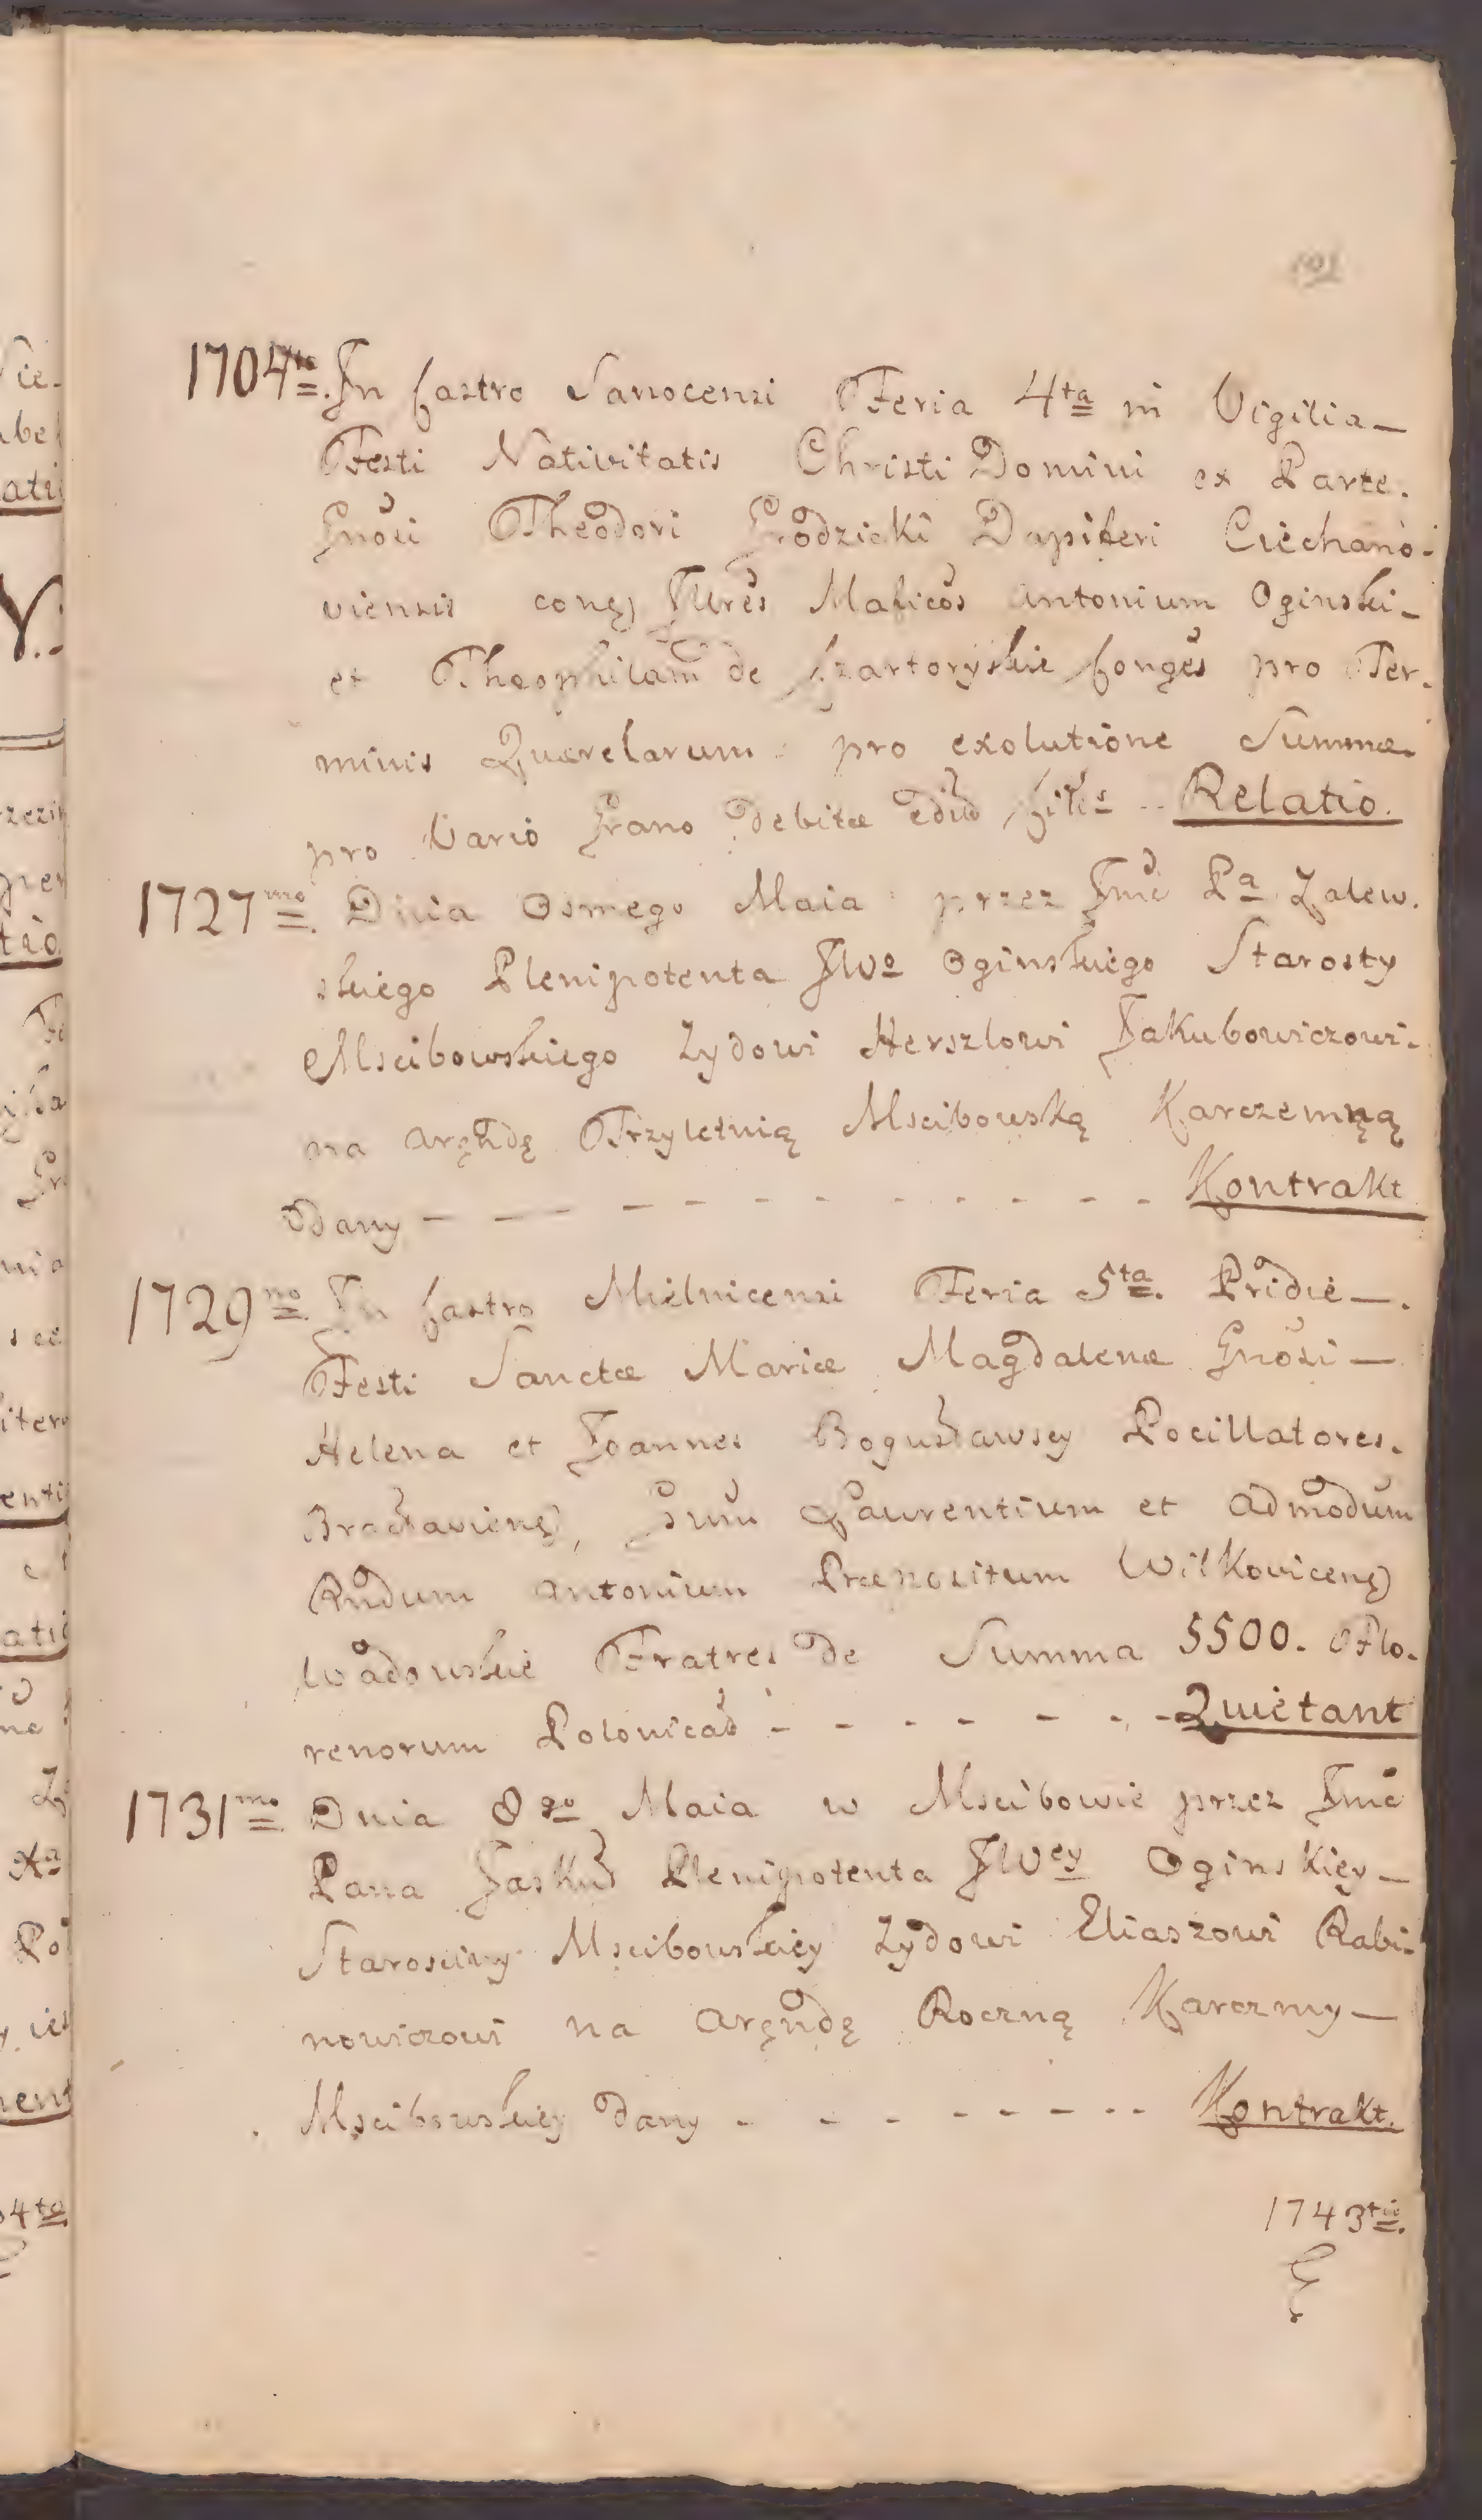 101
1704to. In Castro Sanocensi Feria 4ta in Vigilia
Festi Nativitatis Christi Domini ex Parte.
Gnosi Theodori Grodzicki Dapiferi Ciechano-
viensis conq Illres Maficos Antonium Oginski
et Theophilam de Czartoryskie Conges pro Ter-
minis Quærelarum pro exolutione Summæ
pro Vario Grano Debitæ Relatio.
1727mo. Dnia Osmego Maia przez Jmć Pa Zalew-
skiego Plenipotenta JWo Oginskiego Starosty
Mscibowskiego Zydowi Herszlowi Jakubowiczowi
na Arędę Trzyletnią Mscibowską Karczemną
Dany - - - - - - - - - Kontrakt
1729no. In Castro Mielnicensi Feria 5ta. Pridie
Festi Sanctæ Mariæ Magdalenæ Gnosi
Helena et Joannes Bogusławscy Pocillatores.
Bracłavienq, Laurentium et Admodum
Rndum Antonium Præpositum Wilkovicenq
Wadowskie Fratres de Summa 5500. Flo-
renorum Polonicał - - - - - - Quietant
1731mo. Dnia 8go Maia w Mscibowie przez Jmć
Pana Plenipotenta JWey Oginskięy
Starosciny Mscibowskięy Zydowi Eliaszowi Rabi-
nowiczowi na Arędę Roczną Karczmy
Mscibowskięy Dany - - - - - - - Kontrakt.
1743tio.